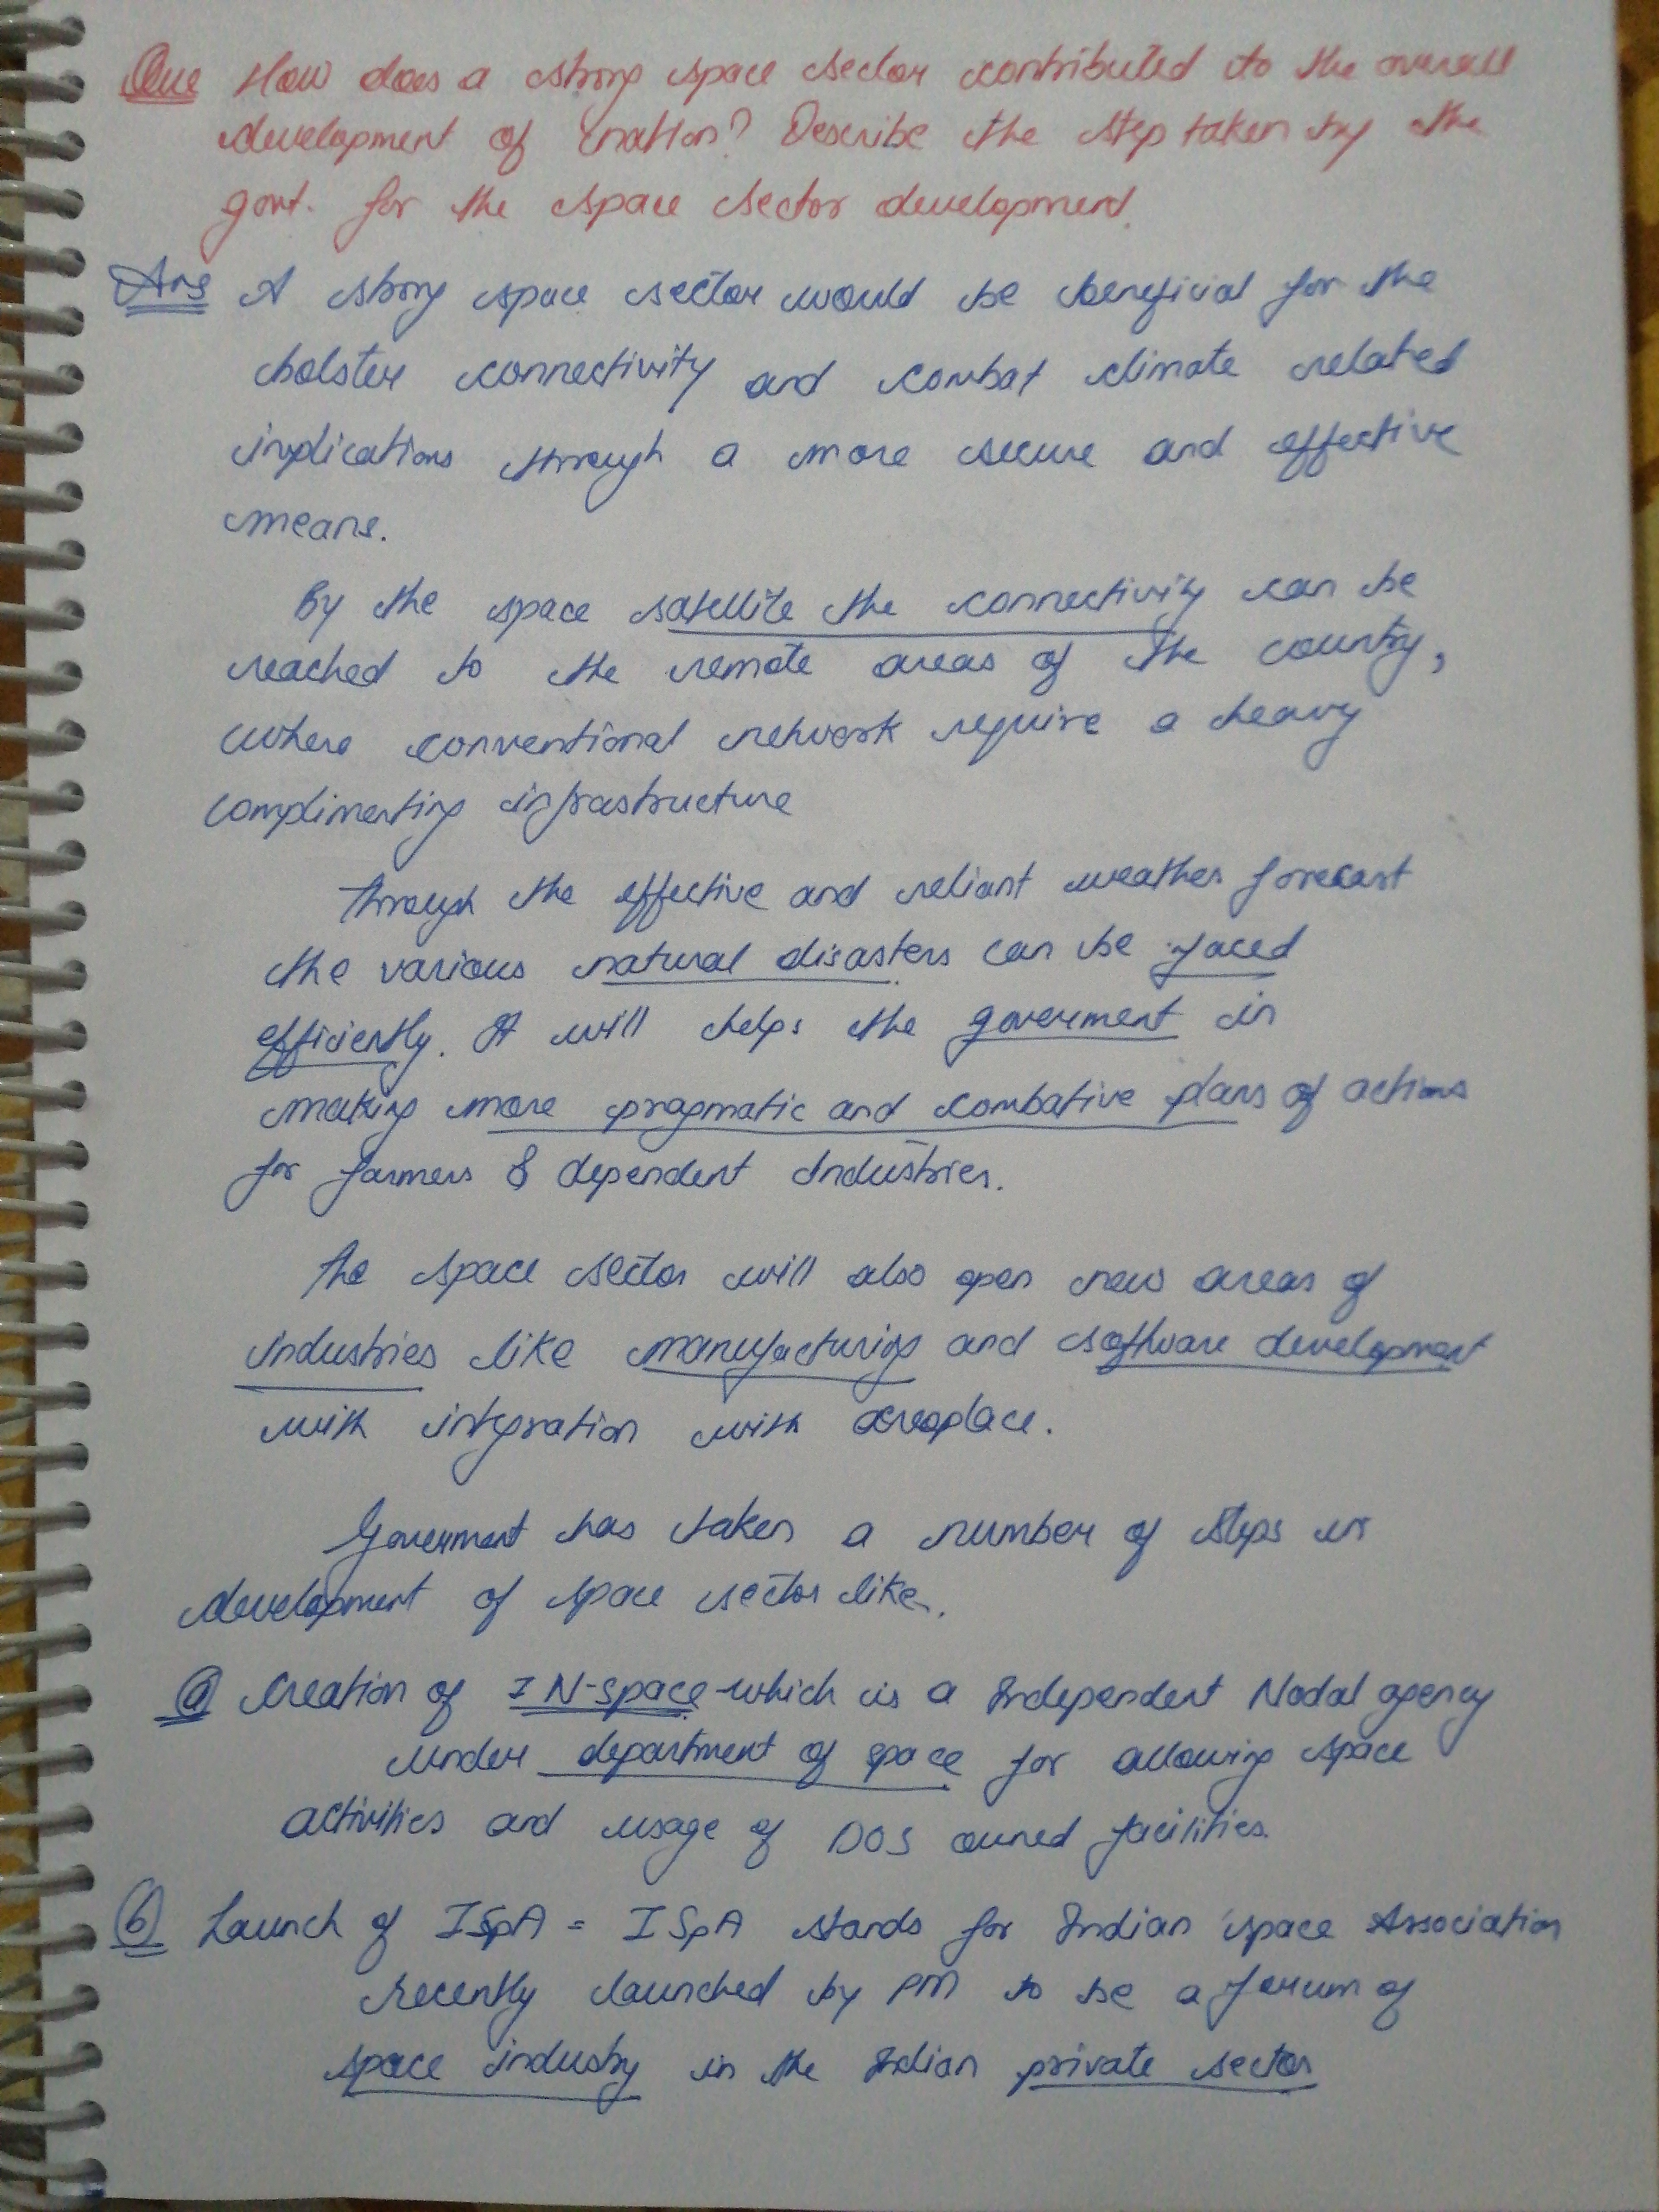 Que How does a strong space sector contributed to the overall
development of nation? Describe the step taken by the
govt. for the space sector development.
Ans A strong space sector would be beneficial for the
bolster connectivity and combat climate related
implications through a more secure and effective
means.
By the space satellite the connectivity can be
reached to the remote areas of the country,
where conventional network require a heavy
complimenting infrastructure
Through the effective and reliant weather forecast
the various natural disasters can be faced
efficiently. It will helps the goverment in
making more pragmatic and combative plans of actions
for farmers & dependent Industries.
The space sector will also open new areas of
industries like manufacturing and software development
with integration with aeroplace.
Goverment has taken a number of steps in
development of space sector like,
(a) Creation of IN-space which is a Independent Nodal agency
under department of space for allowing space
activities and usage of DOS owned facilities.
(b) Launch of ISpA = ISpA stands for Indian space Association
recently launched by PM to be a forum of
space industry in the Indian private sector